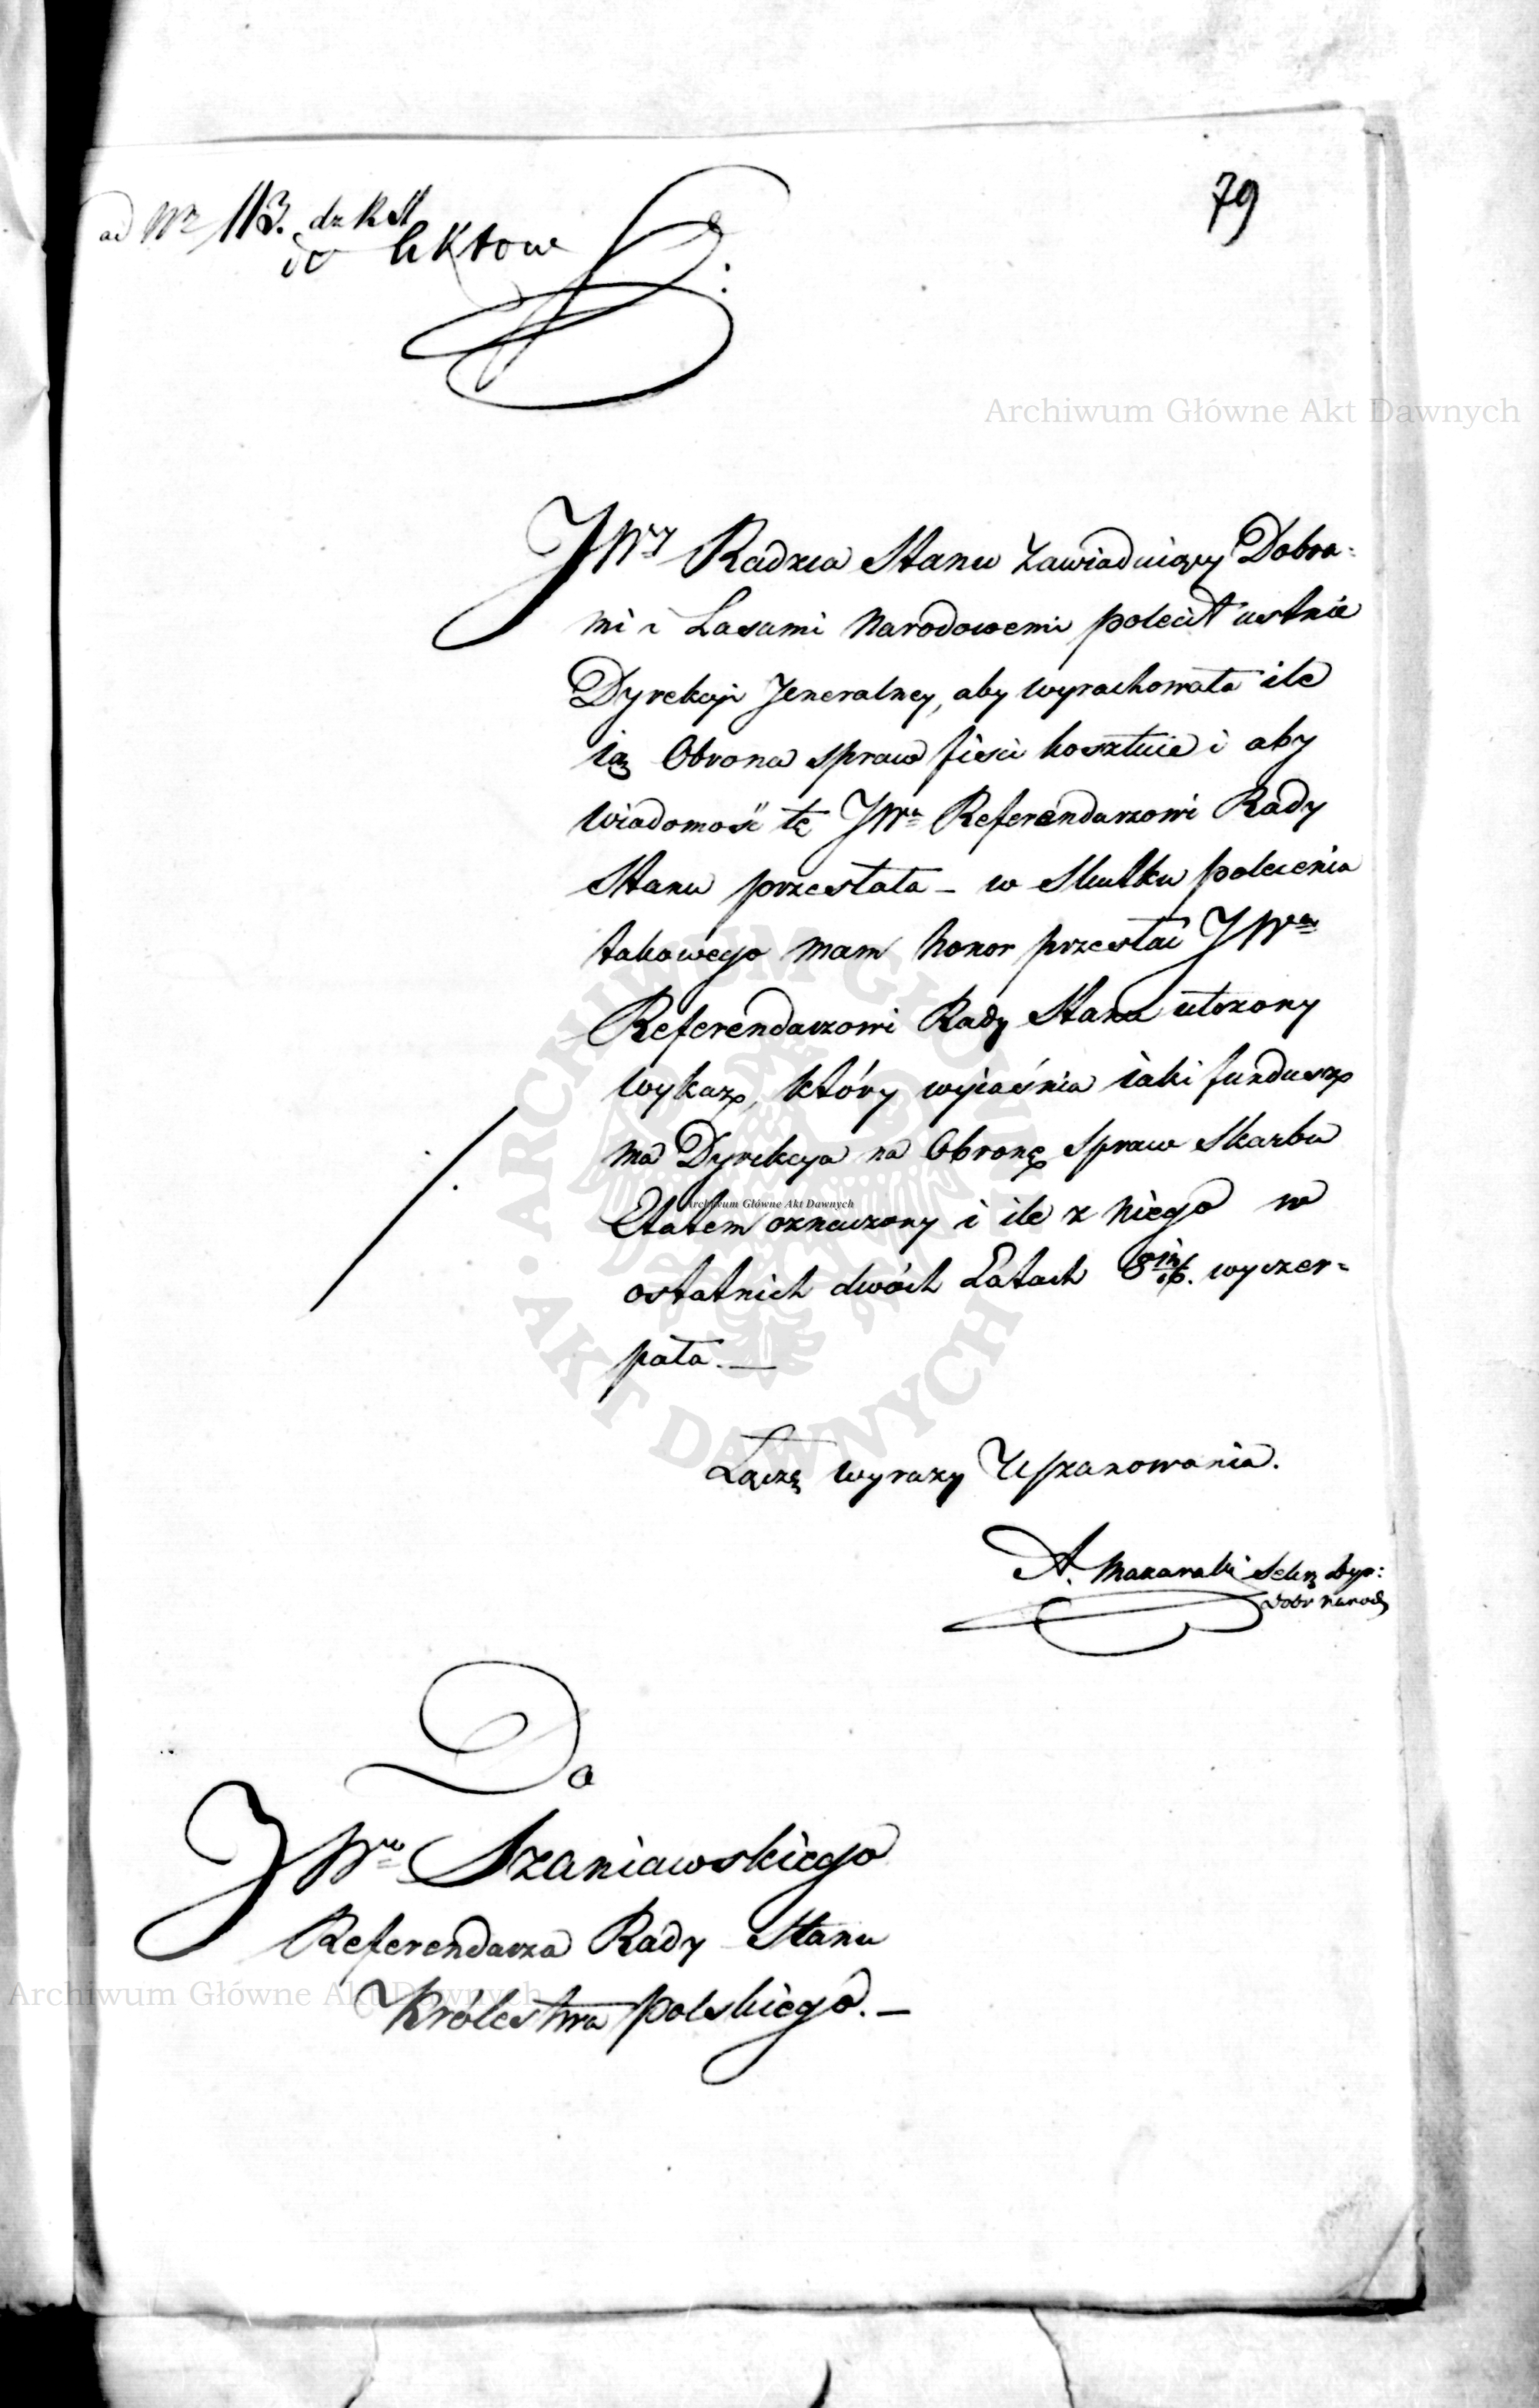 79
ad Nr 113. dz R St
do Aktow
Archiwum Główne Akt Dawnych
JWny Radzca Stanu Zawiaduiący Dobra-
mi i Lasami Narodowemi polecił ustnie
Dyrekcyi Jeneralney, aby wyrachowała ile
ią Obrona spraw iey kosztuie i aby
wiadomość tę JWu Referendarzowi Rady
Stanu przesłała – w Skutku polecenia
takowego mam honor przesłać JWu
Referendarzowi Rady Stanu ułożony
wykaz, który wyiaśnia iaki fundusz
ma Dyrekcya na Obronę Spraw Skarbu
Etatem oznaczony i ile z niego w
ostatnich dwóch Latach wyczer-
pała. —
Łączę wyrazy Uszanowania.
A. Sekrz Dyr:
Dobr Narod
Do
JWo Szaniawskiego
Referendarza Rady Stanu
Królestwa Polskiego. —
ARCHIWUM GŁÓWNE AKT DAWNYCH
Archiwum Główne Akt Dawnych
Archiwum Główne Akt Dawnych